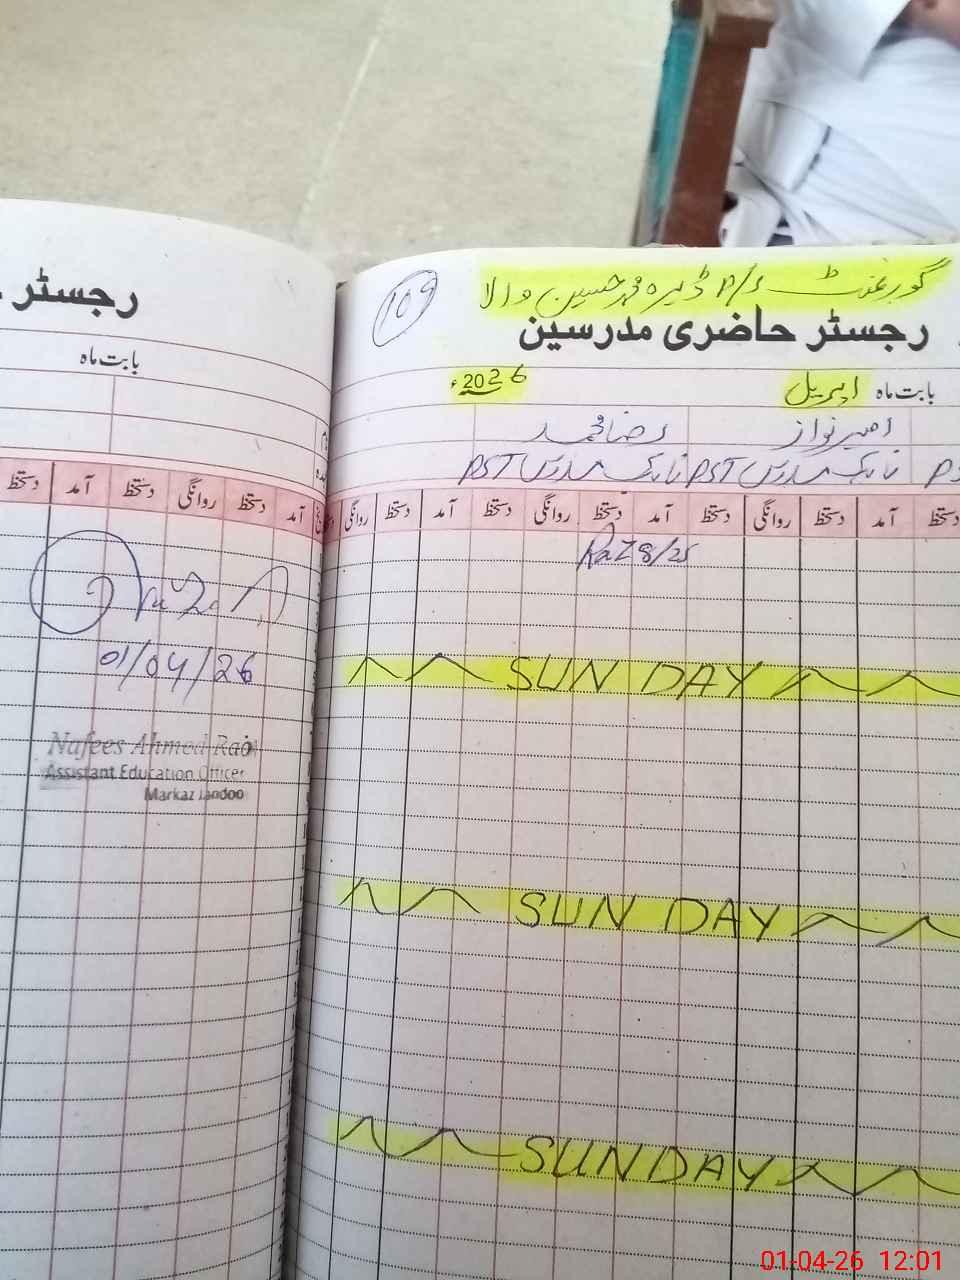 رجسٹر
بابت ماہ
دستخط آمد دستخط روانگی دستخط آمد
01/04/26
Nafees Ahmed Rao
Assistant Education Officer
Markaz Jandoo
109
گورنمنٹ P/S ڈیرہ محمد حسین والا
رجسٹر حاضری مدرسین
بابت ماہ اپریل 2026ء
امیر نواز رضا محمد
نائیک مدرس PST نائیک مدرس PST
دستخط آمد دستخط روانگی دستخط آمد دستخط روانگی دستخط آمد دستخط روانگی
8/25
SUNDAY
SUNDAY
SUNDAY
01-04-26 12:01